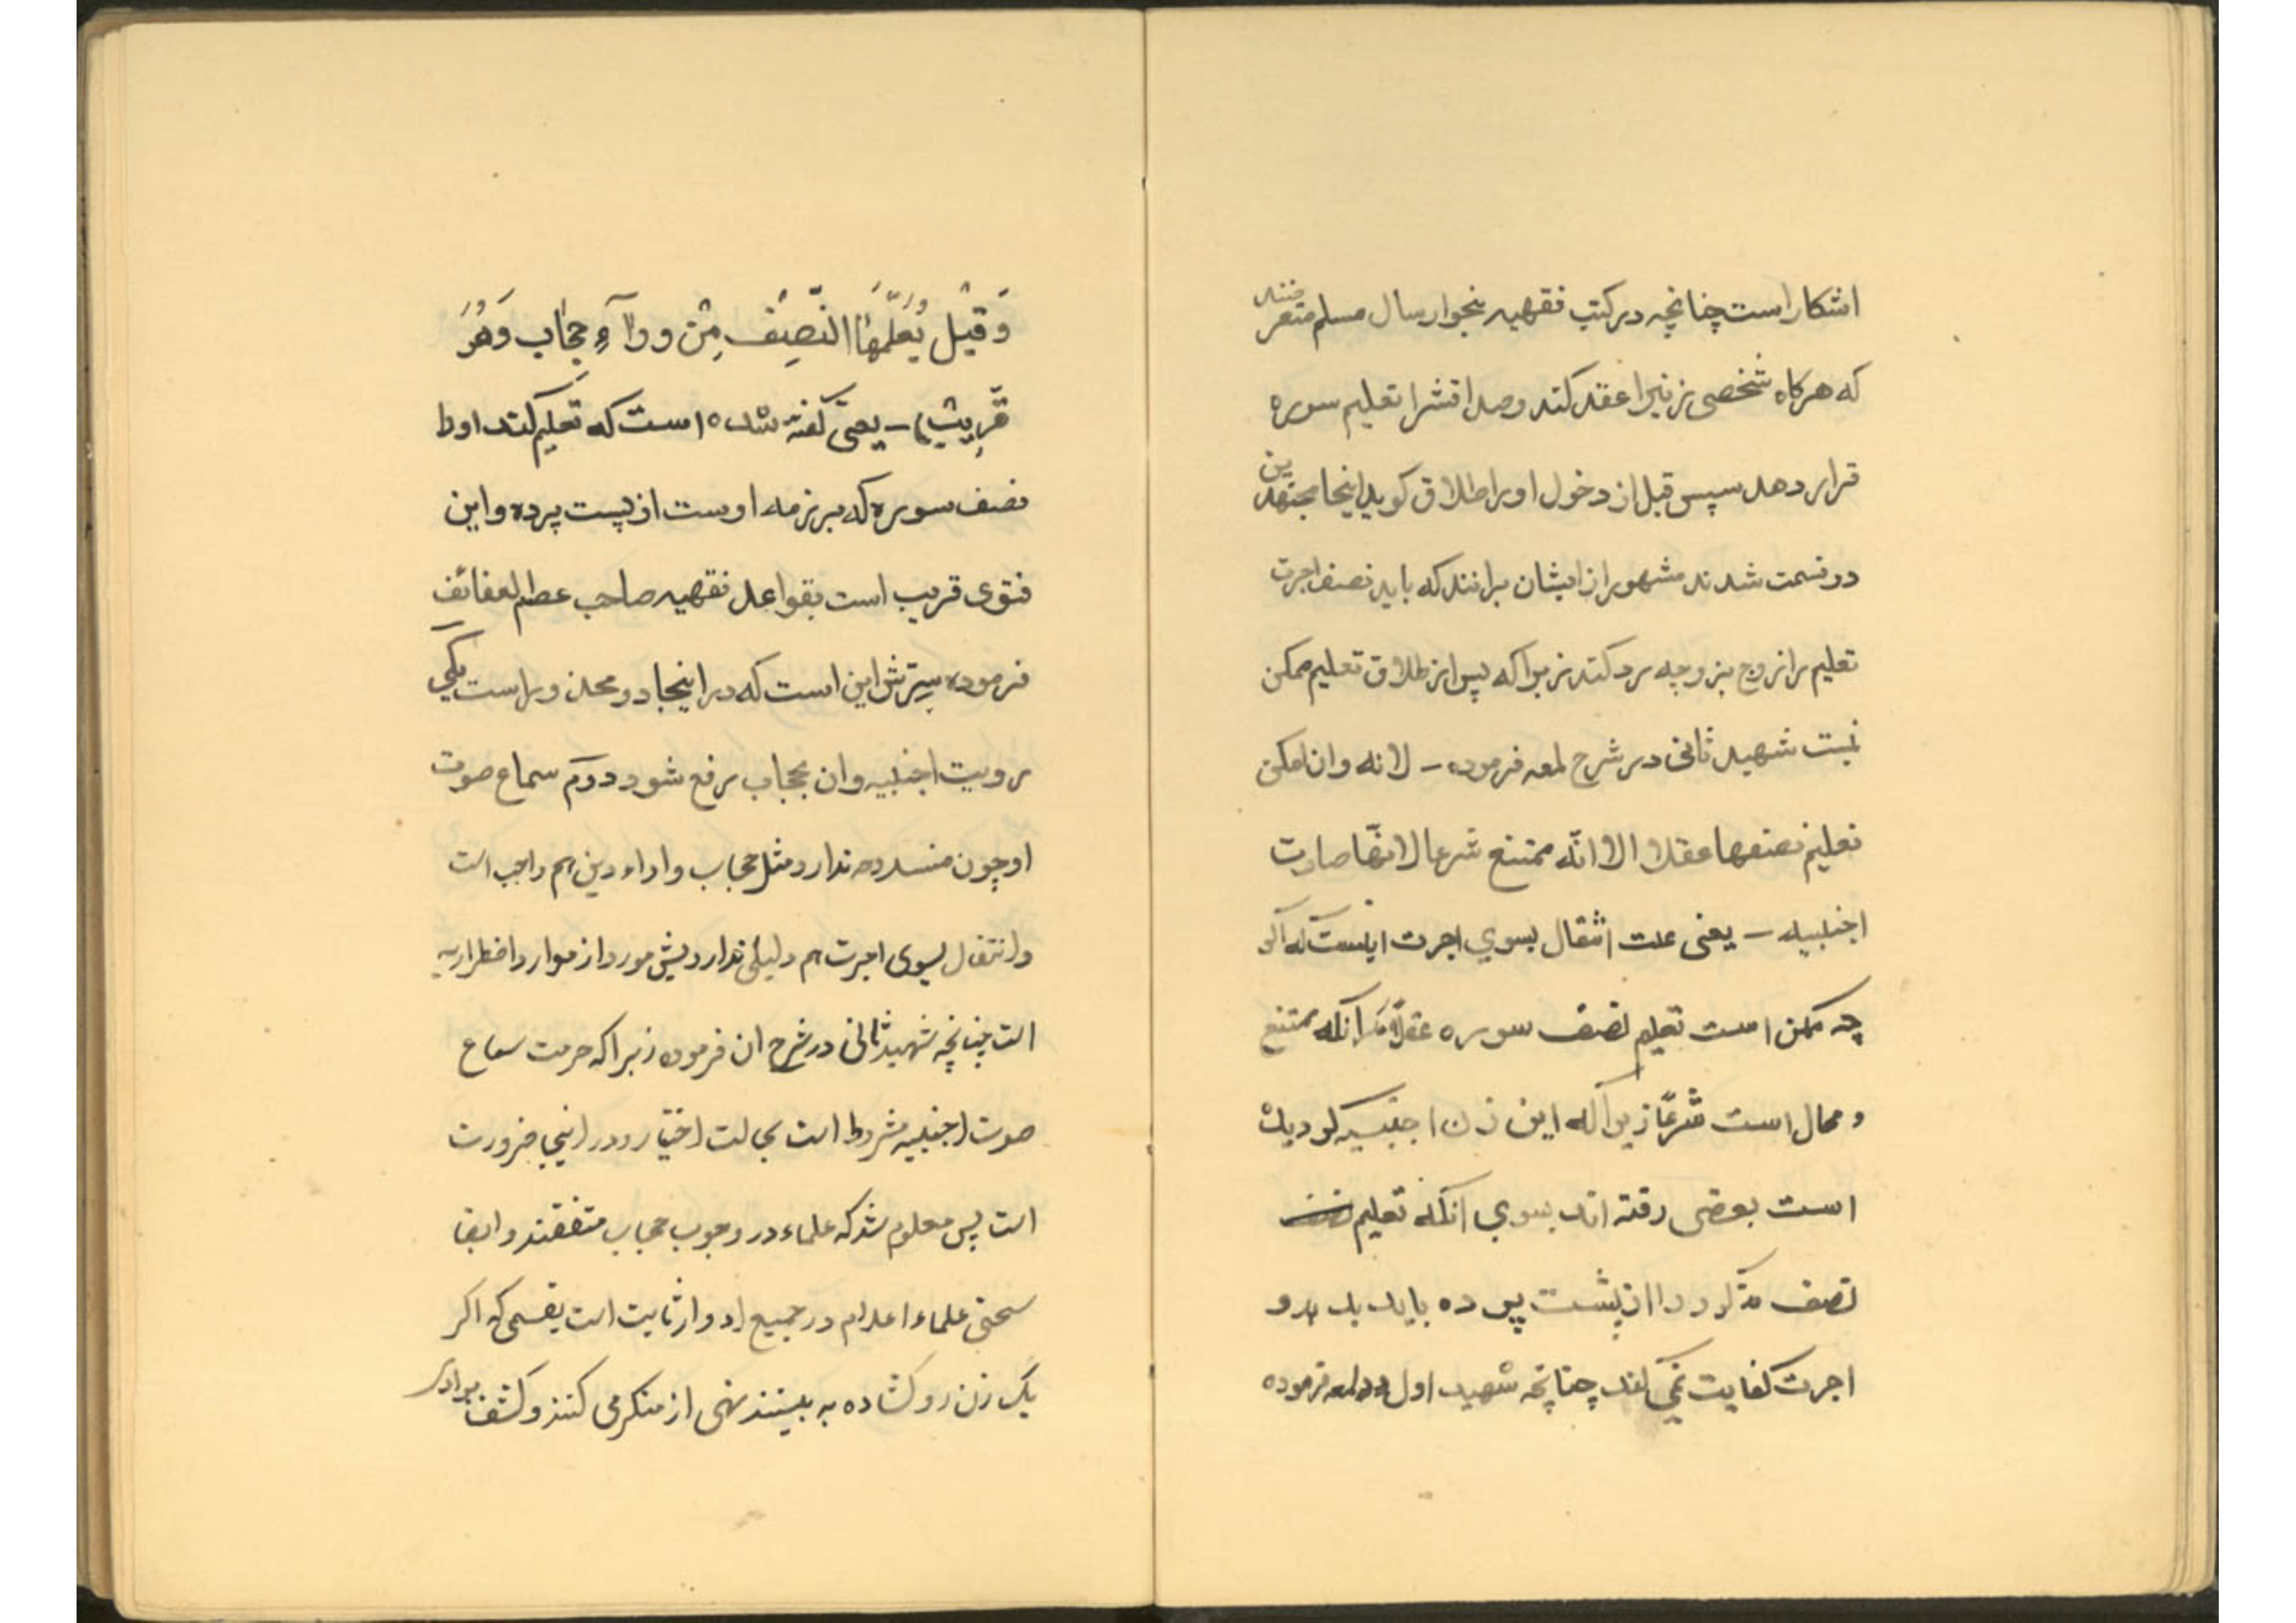 اشکار است چنانچه در کتب فقهیه بنحو ارسال مسلم متعرضند
که هرکاه شخصی زنیرا عقد کند و صداقشرا تعلیم سوره
قرار دهد سپس قبل از دخول او را طلاق کوید اینجا مجتهدین
دو قسمت شدند مشهور از ایشان برانند که باید نصف اجرت
تعلیم را زوج بزوجه رد کند زیرا که پس از طلاق تعلیم ممکن
نیست شهید ثانی در شرح لمعه فرموده – لانه وان امکن
تعلیم نصفها عقلا الا انّه ممتنع شرعا لانهّا صارت
اجنبیه – یعنی علت انتقال بسوی اجرت اینست که اکر
چه ممکن است تعلیم نصف سوره عقلاً مکر انکه ممتنع
و محال است شرعًا زیرا که این زن اجنبیه کردیده
است بعضی رفته اند بسوی انکه تعلیم نصف
نصف مذکور را از پشت پرده باید بدهد و
اجرت کفایت نمی کند چنانچه شهید اول در لمعه فرموده
وَقیْلَ یُعَلّمُهَا النّصِفُ مِنْ ورآءِ حِجٰاب وَهُوَ
قَرِیبٌ) – یعنی کفته شده است که تعلیم کند او را
نصف سوره که بر زمه اوست از پست پرده و این
فتوی قریب است بقواعد فقهیه صاحب عطر العفائف
فرموده سِترش این است که در اینجا دو محذور است یکی
رویت اجنبیه وان بحجاب رفع شود دوّم سماع صوت
او چون مفسده ندارد مثل حجاب و اداء دین هم واجب است
و انتقال بسوی اجرت هم دلیلی ندارد پیش مورد از موارد اضطراریه
است چنانچه شهید ثانی در شرح ان فرموده زیرا که حرمت سماع
صوت اجنبیه مشروط است بحالت اختیار و در اینجا ضرورت
است پس معلوم شد که علماء در وجوب حجاب متفقند و ایضا
سختی علماء اعلام در جمیع ادوار ثابت است بقسمی که اکر
یک زن رو کشاده به بینند نهی از منکر می کنند و کشف